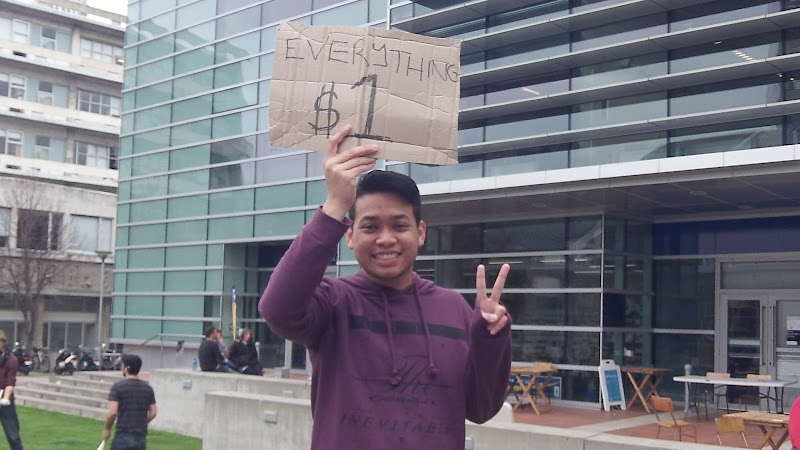 EVERYTHING
$1
The
INEVITABLE